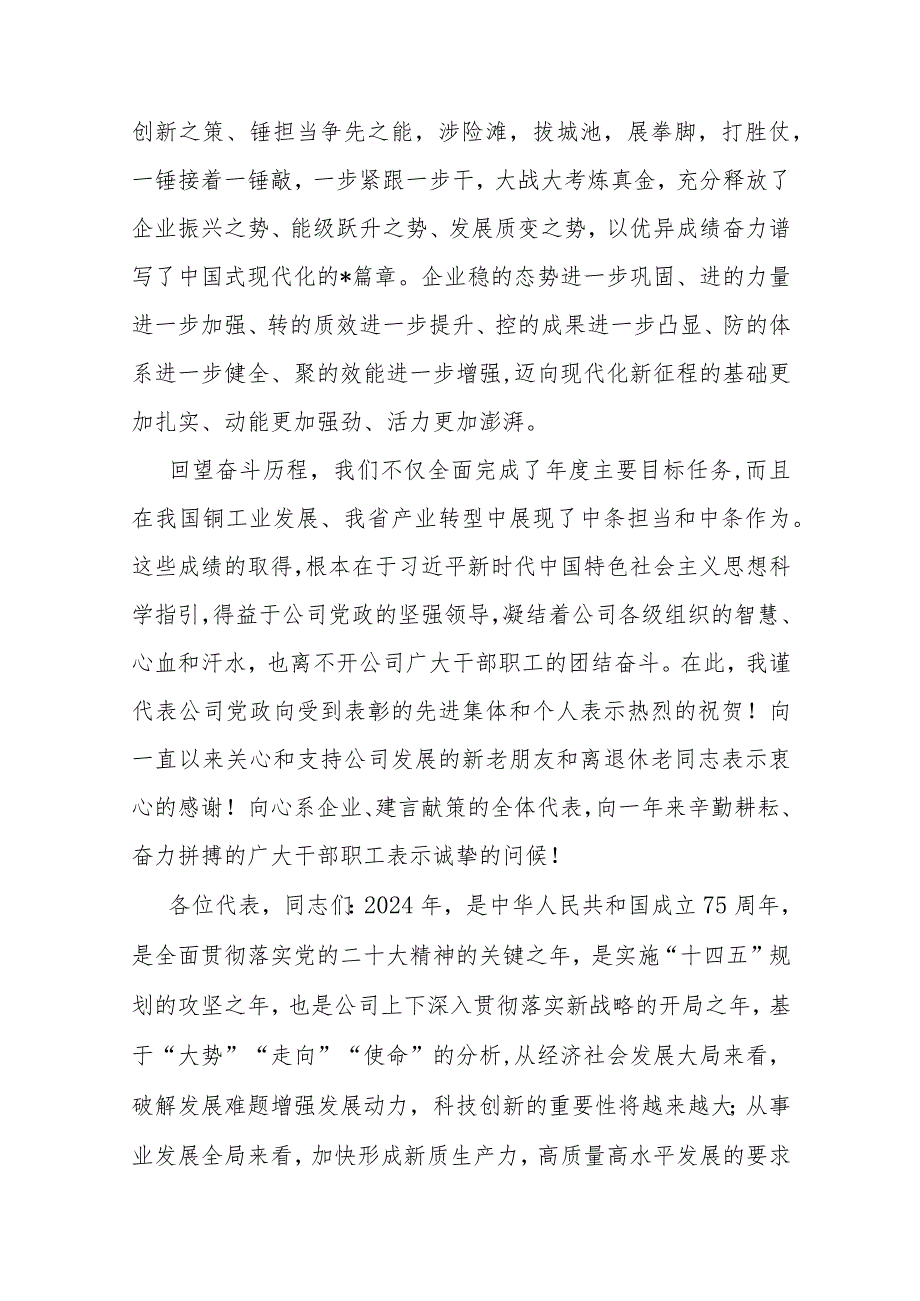 创新之策、锤担当争先之能，涉险滩，拔城池，展拳脚，打胜仗，
一锤接着一锤敲，一步紧跟一步干，大战大考炼真金，充分释放了
企业振兴之势、能级跃升之势、发展质变之势，以优异成绩奋力谱
写了中国式现代化的*篇章。企业稳的态势进一步巩固、进的力量
进一步加强、转的质效进一步提升、控的成果进一步凸显、防的体
系进一步健全、聚的效能进一步增强,迈向现代化新征程的基础更
加扎实、动能更加强劲、活力更加澎湃。
回望奋斗历程，我们不仅全面完成了年度主要目标任务,而且
在我国铜工业发展、我省产业转型中展现了中条担当和中条作为。
这些成绩的取得,根本在于习近平新时代中国特色社会主义思想科
学指引,得益于公司党政的坚强领导,凝结着公司各级组织的智慧、
心血和汗水，也离不开公司广大干部职工的团结奋斗。在此，我谨
代表公司党政向受到表彰的先进集体和个人表示热烈的祝贺！向
一直以来关心和支持公司发展的新老朋友和离退休老同志表示衷
心的感谢！向心系企业、建言献策的全体代表，向一年来辛勤耕耘、
奋力拼搏的广大干部职工表示诚挚的问候！
各位代表，同志们：2024 年，是中华人民共和国成立 75 周年，
是全面贯彻落实党的二十大精神的关键之年，是实施“十四五”规
划的攻坚之年，也是公司上下深入贯彻落实新战略的开局之年，基
于“大势”“走向”“使命”的分析,从经济社会发展大局来看，
破解发展难题增强发展动力，科技创新的重要性将越来越大；从事
业发展全局来看，加快形成新质生产力，高质量高水平发展的要求